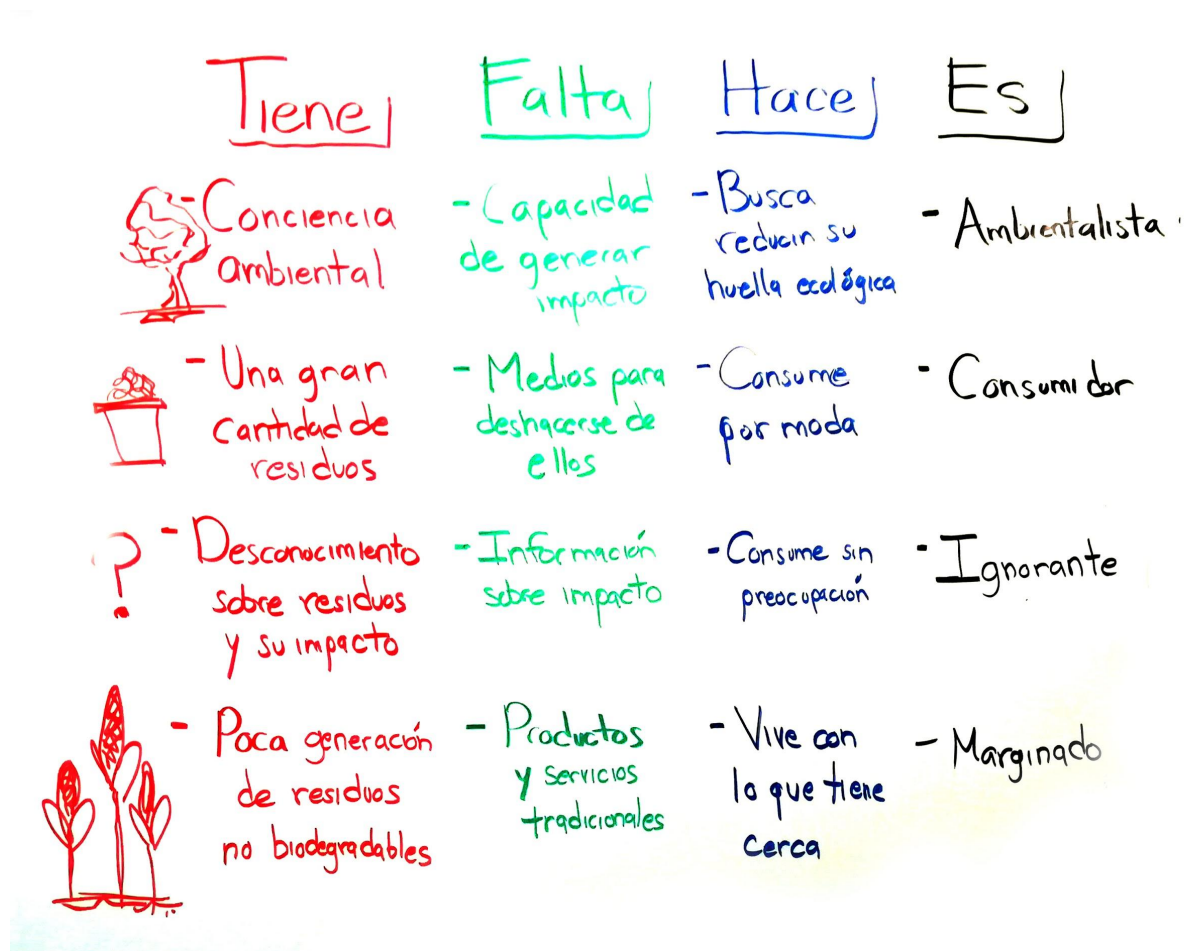 Tiene Falta Hace Es
- Conciencia
ambiental
- Capacidad
de generar
impacto
- Busca
reducir su
huella ecológica
- Ambientalista
- Una gran
cantidad de
residuos
- Medios para
deshacerse de
ellos
- Consume
por moda
- Consumidor
?
- Desconocimiento
sobre residuos
y su impacto
- Información
sobre impacto
- Consume sin
preocupación
- Ignorante
- Poca generación
de residuos
no biodegradables
- Productos
y servicios
tradicionales
- Vive con
lo que tiene
cerca
- Marginado